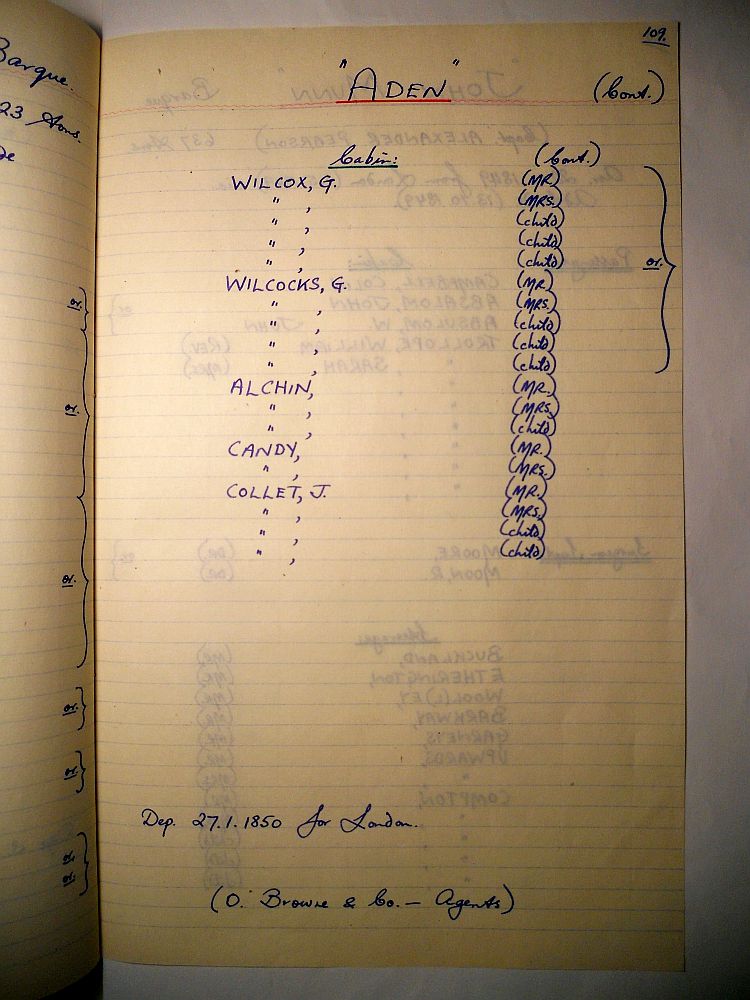 Barque.
23 Tons.
de
or.
or.
or.
or.
or.
or.
or.
109.
"ADEN" (Cont.)
Cabin: (Cont.)
WILCOX, G. (MR.)
" , (MRS.)
" , (child)
" , (child)
" , (child)
or.
WILCOCKS, G. (MR.)
" , (MRS.)
" , (child)
" , (child)
" , (child)
ALCHIN, (MR.)
" , (MRS.)
" , (child)
CANDY, (MR.)
" , (MRS.)
COLLET, J. (MR.)
" , (MRS.)
" , (child)
" , (child)
Dep. 27.1.1850 for London.
(O. Browne & Co. — Agents)